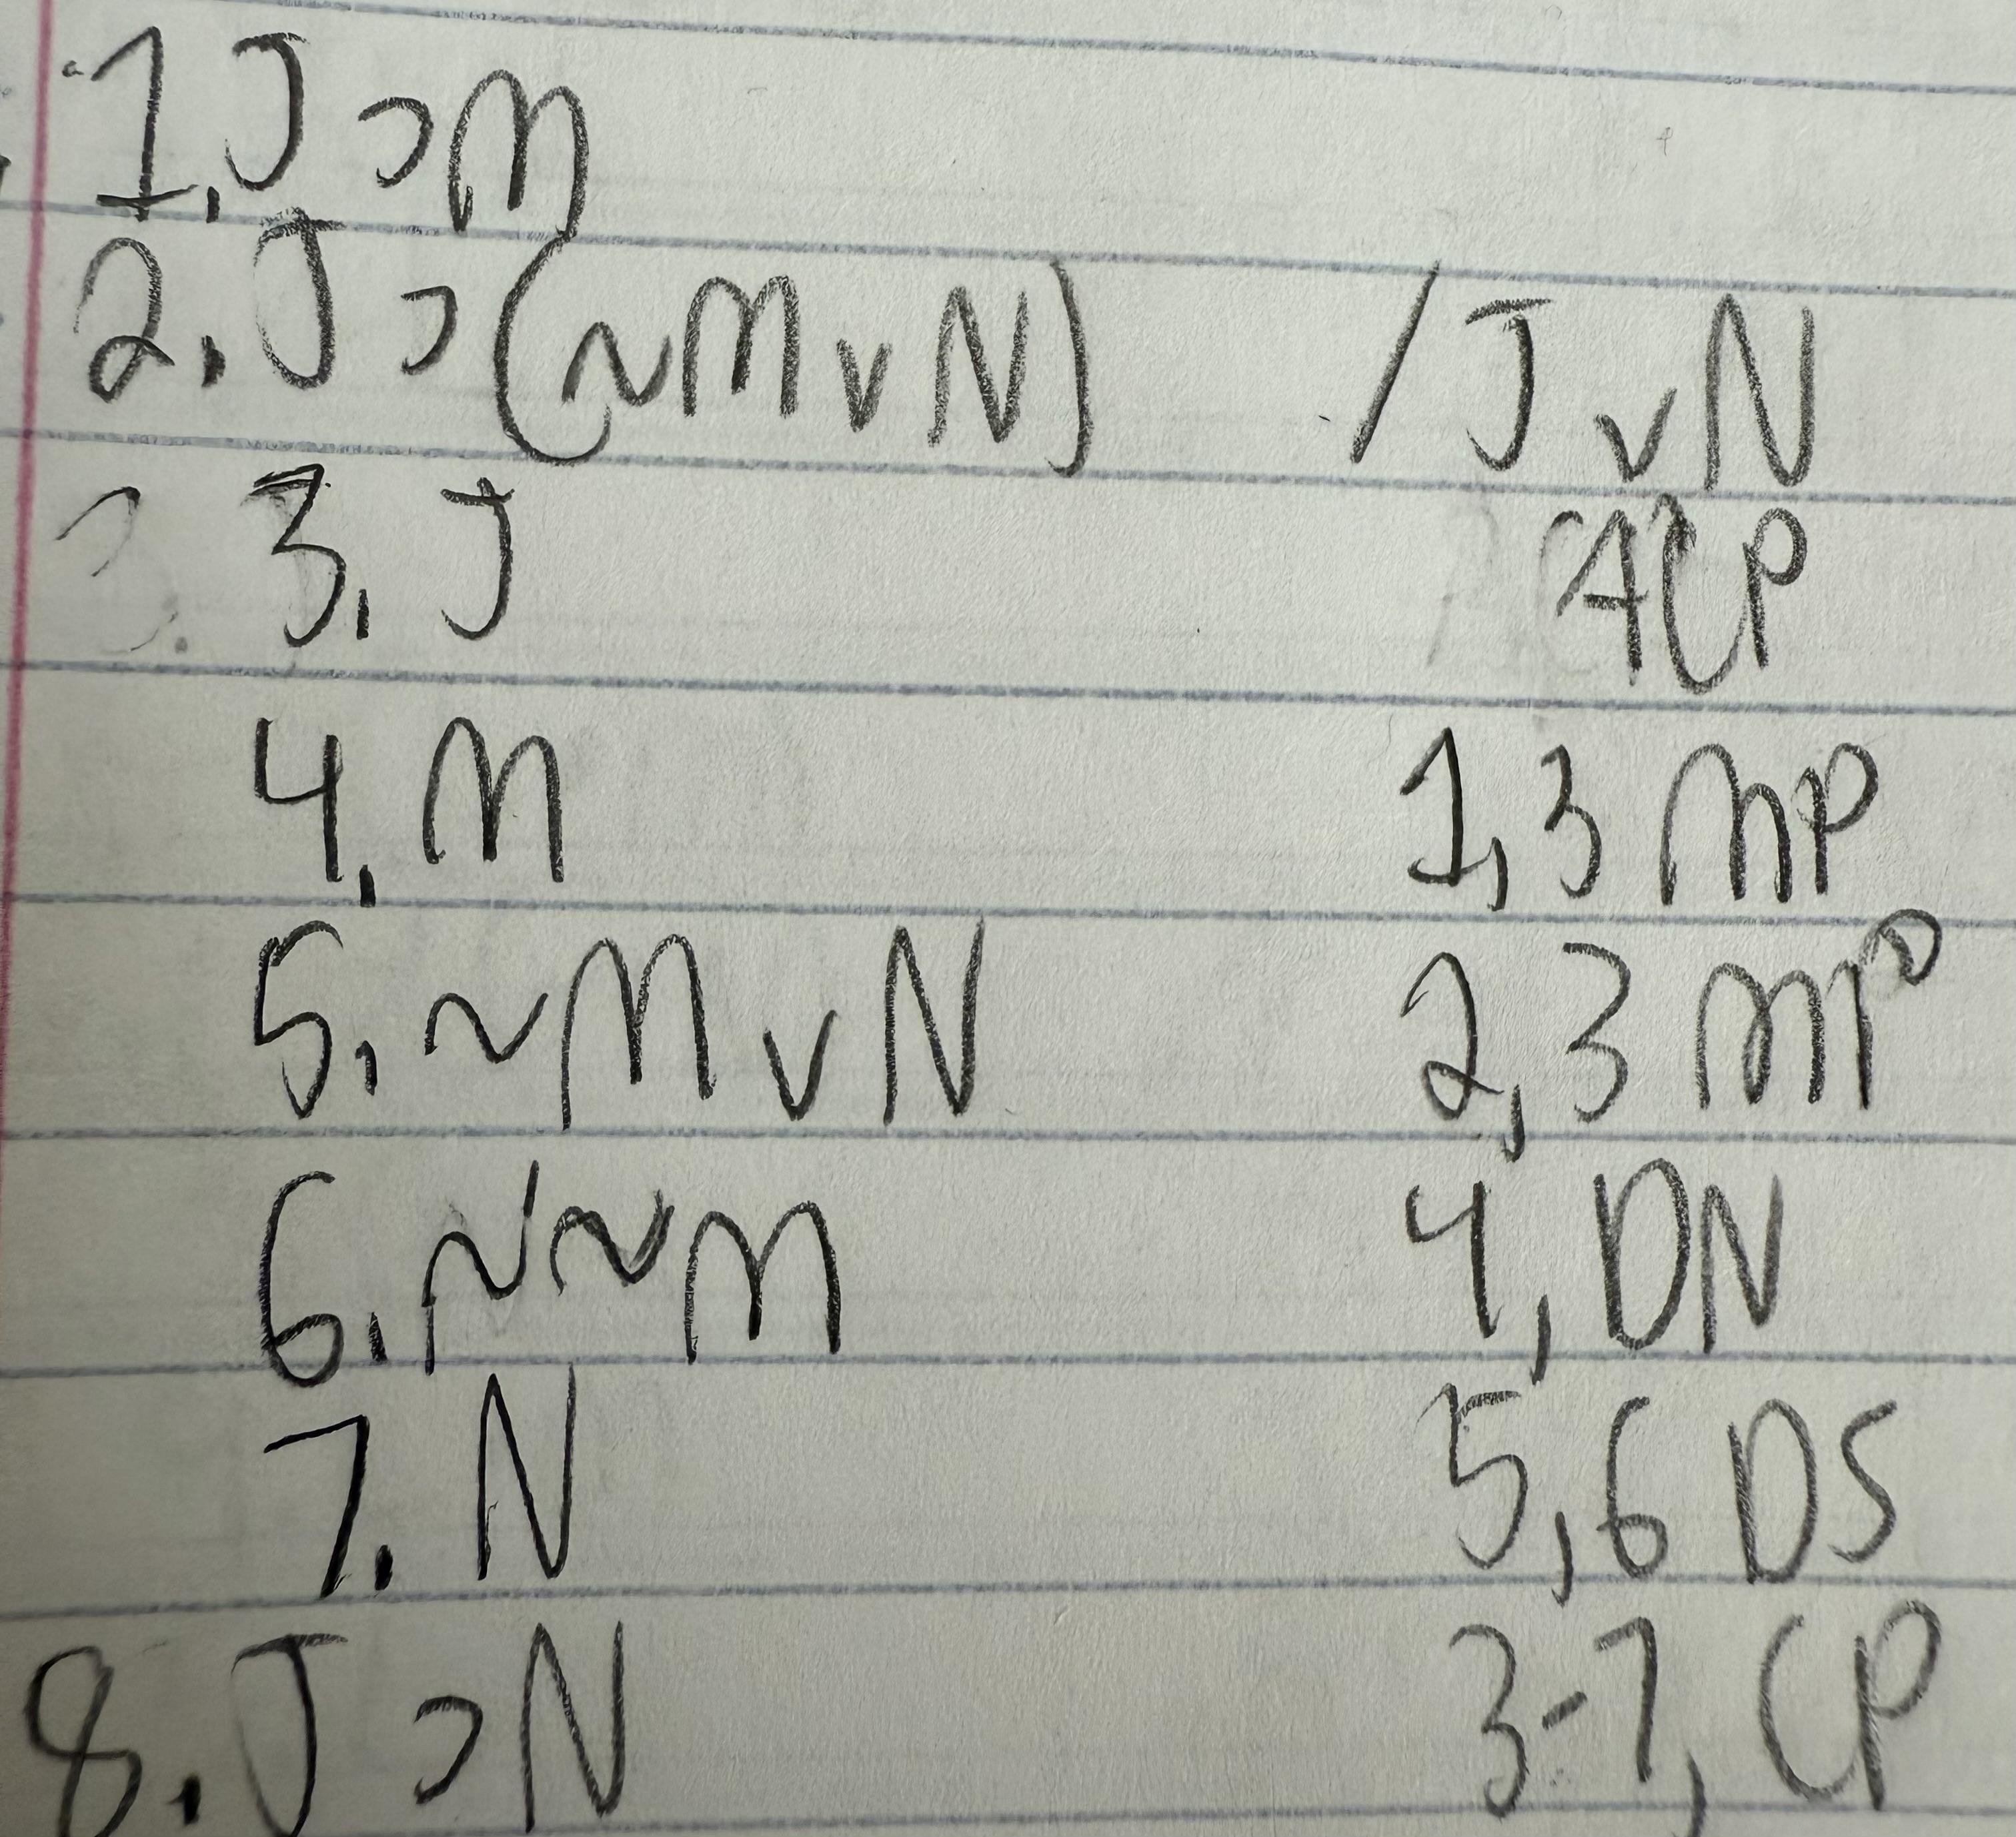 1. J ⊃ M
2. J ⊃ (~M v N) / J v N
3. J ACP
4. M 1, 3 MP
5. ~M v N 2, 3 MP
6. ~~M 4, DN
7. N 5, 6 DS
8. J ⊃ N 3-7, CP